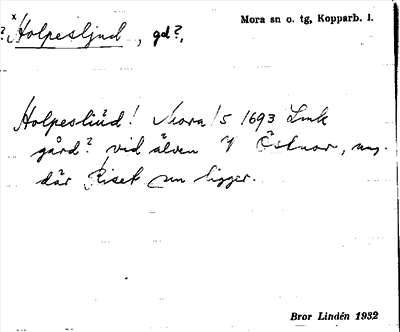 ? x Holpesljud, gd?,
Mora sn o. tg, Kopparb. l.
Holpesliüd! Mora /5 1693 Lmk
gård? vid älven Y Östnor, ung.
där Riset nu ligger.
Bror Lindén 1932